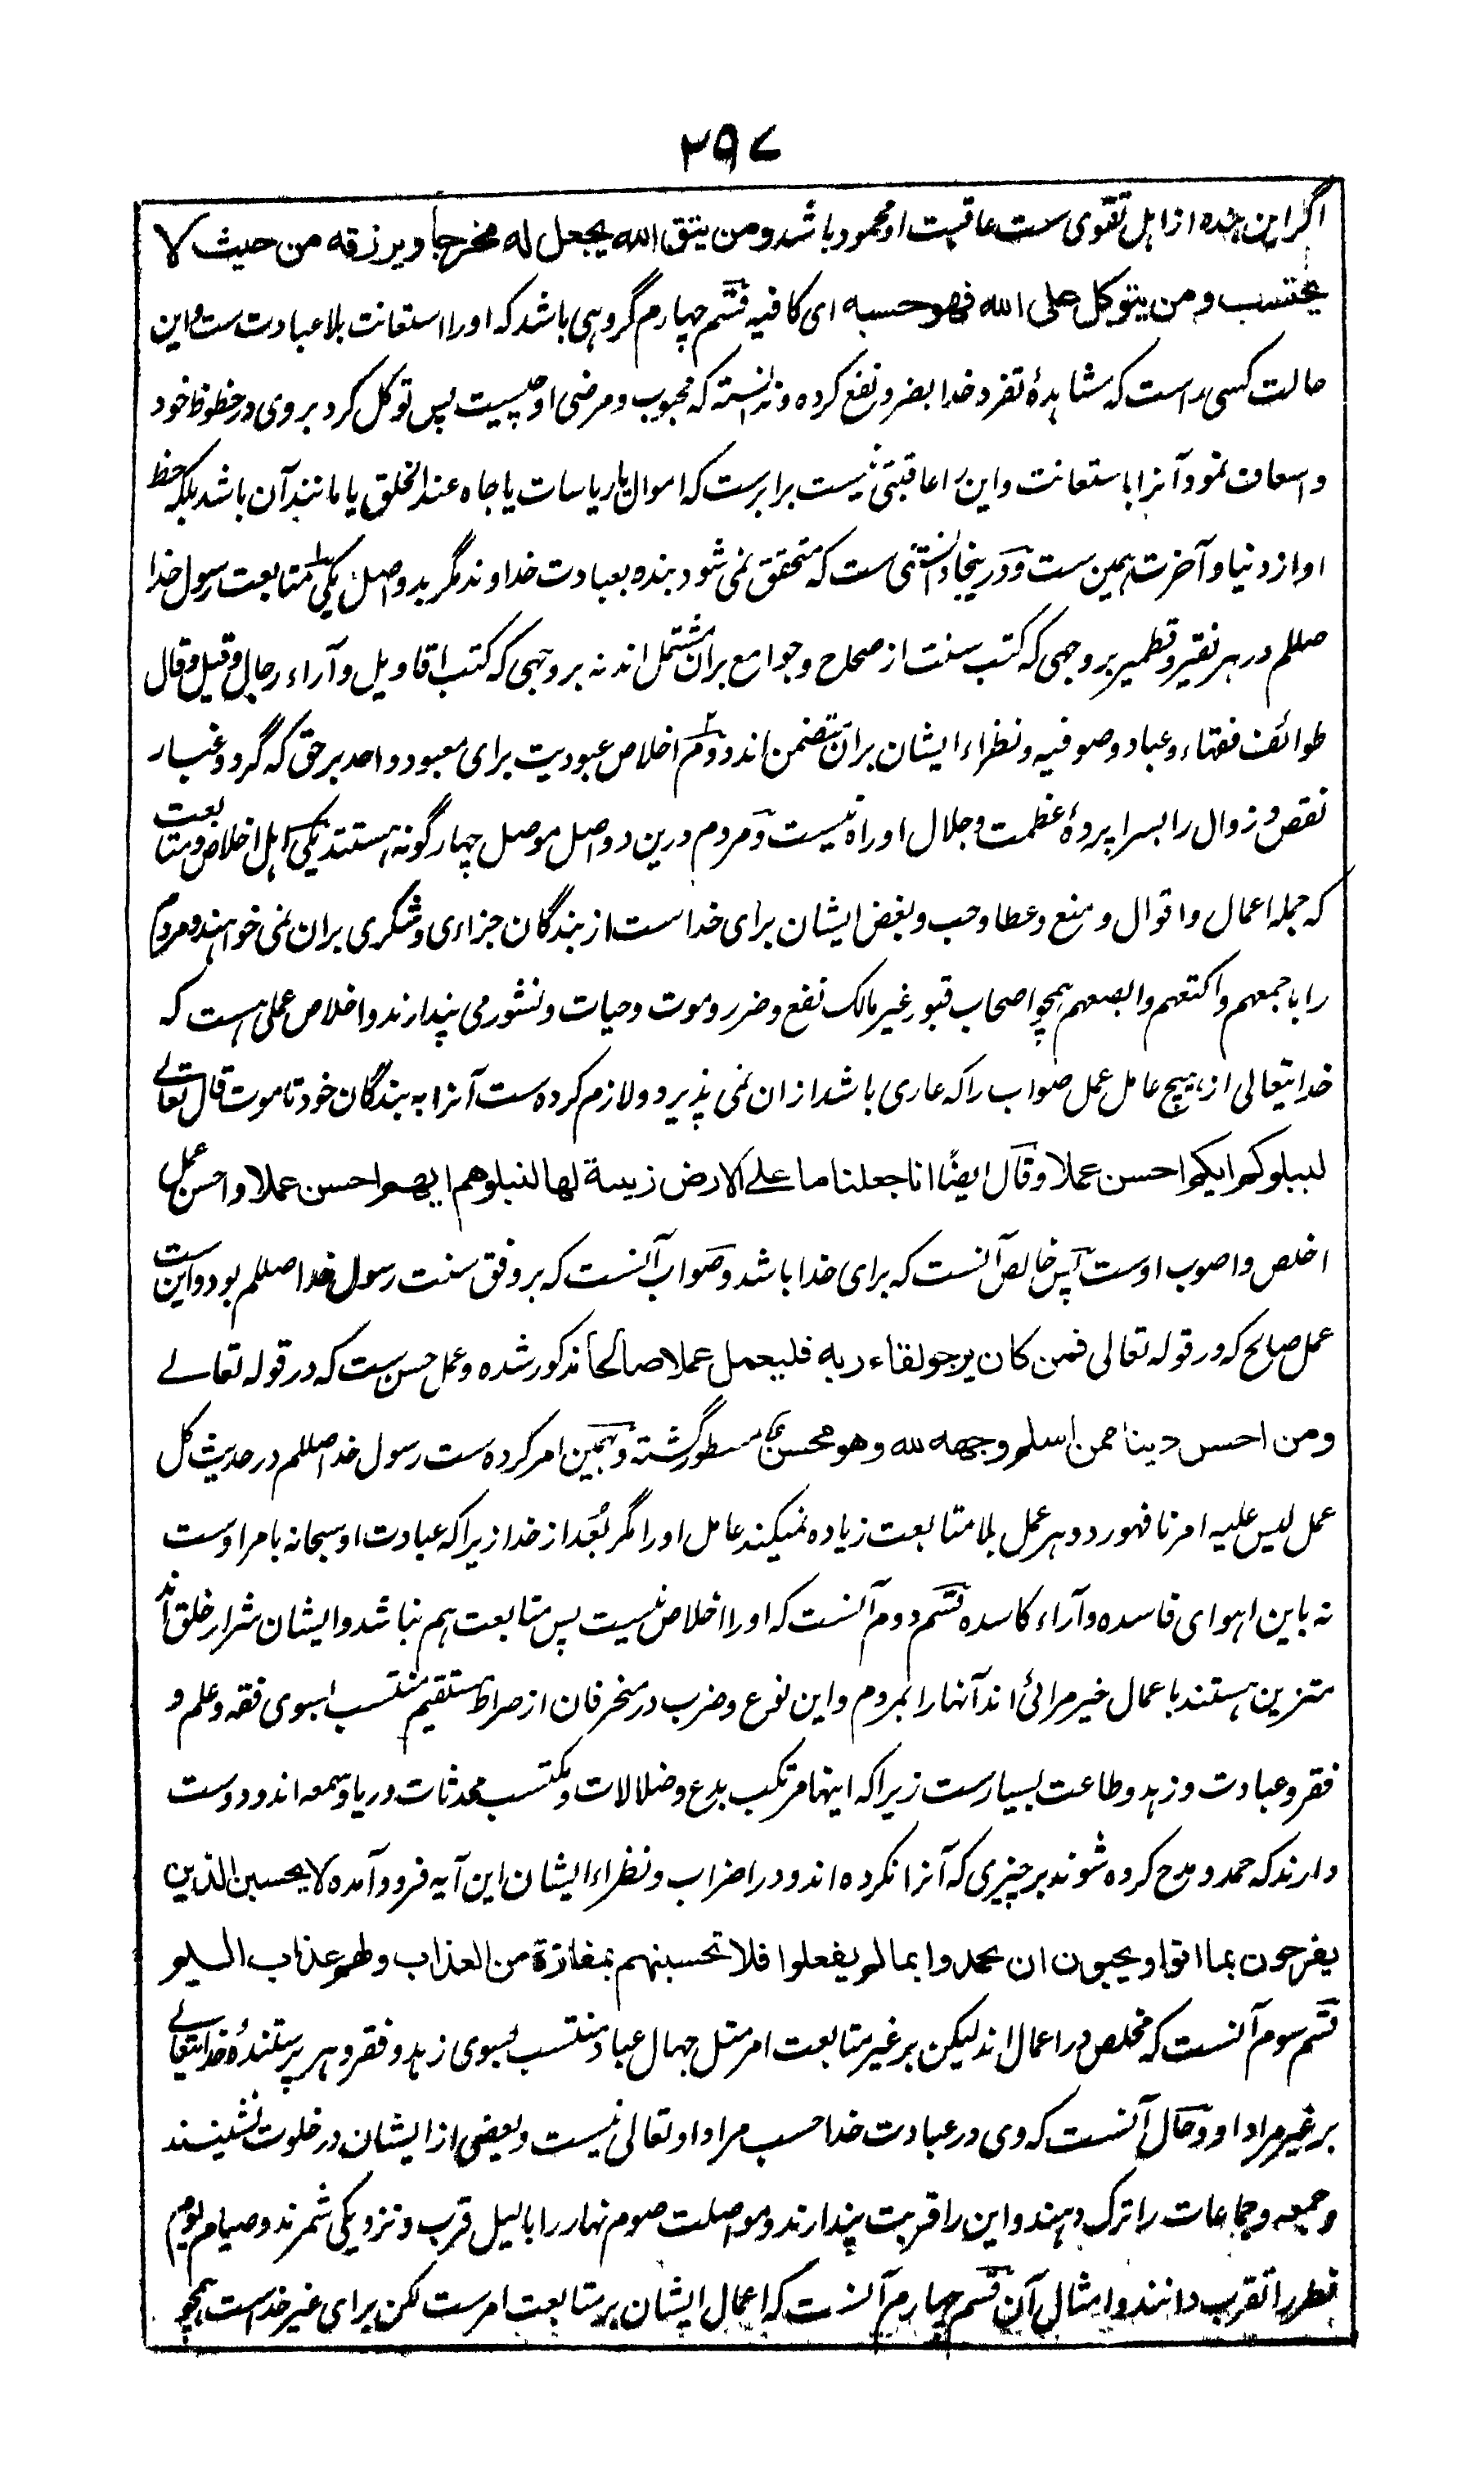 ۲۹۷
اگر این بنده از اہل تقوی ست عاقبت او محمود باشد ومن یتق الله یجعل له مخرجا ویرزقه من حیث لا
یحتسب ومن یتوکل علی الله فهو حسبه ای کافیه قسم چہارم گروہی باشد که اورا استعانت بلا عبادت ست و این
حالت کسی ست که مشاہدۂ تفرد خدا بضر و نفع کرده و ندانسته که محبوب و مرضی او چیست پس توکل کرد بروی در حظوظ خود
و اسعاف نمود آنرا باستعانت و این را عاقبتی نیست برابرست که اموال یا ریاسات یا جاه عند الخلق یا مانند آن باشد بلکه حظ
او از دنیا و آخرت ہمین ست و درینجا دانستنی ست که متحقق نمی شود بنده بعبادت خداوند مگر بدو اصل یکی متابعت رسول خدا
صللم در ہر نقیر و قطمیر بروجہی که کتب سنت از صحاح و جوامع بران مشتمل اند نه بروجہی که کتب اقاویل و آراء رجال و قیل و قال
طوائف فقہاء و عباد و صوفیه و نظراء ایشان بران متضمن اند دوم اخلاص عبودیت برای معبود واحد برحق که گرد و غبار
نقص و زوال را بسراپردۂ عظمت و جلال او راه نیست و مردم درین دو اصل موصل چہار گونه ہستند یکی اہل اخلاص و متابعت
که جمله اعمال و اقوال و منع و عطا و حب و بغض ایشان برای خداست از بندگان جزاءی و شکری بران نمی خواہند و مردم
را باجمعہم واکتعہم وابصعہم ہمچو اصحاب قبور غیر مالک نفع و ضرر و موت و حیات و نشور می پندارند و اخلاص عملی ہست که
خدایتعالی از ہیچ عامل عمل صواب را که عاری باشد ازان نمی پذیرد و لازم کرده ست آنرا به بندگان خود تا موت قال تعالے
لیبلوکم ایکم احسن عملا وقال ایضًا انا جعلنا ما علے الارض زینة لها لنبلوهم ایهم احسن عملا و احسن عمل
اخلص و اصوب اوست پس خالص آنست که برای خدا باشد و صواب آنست که بروفق سنت رسول خدا صللم بود و این ست
عمل صالح که در قوله تعالی فمن کان یرجو لقاء ربه فلیعمل عملا صالحًا مذکور شده و عمل حسن ست که در قوله تعالے
ومن احسن دینا ممن اسلم وجهه لله وهو محسن مسطور گشته و بہمین امر کرده ست رسول خدا صللم در حدیث کل
عمل لیس علیه امرنا فهو رد و ہر عمل بلا متابعت زیاده نمیکند عامل اورا مگر بُعد از خدا زیراکه عبادت او سبحانه بامر اوست
نه باین اہوای فاسده و آراء کاسده قسم دوم آنست که اورا اخلاص نیست پس متابعت ہم نباشد و ایشان شرار خلق اند
متزین ہستند باعمال خیر مرائی اند آنہا را بمردم و این نوع و ضرب در منحرفان از صراط مستقیم منتسب بسوی فقه و علم و
فقر و عبادت و زہد و طاعت بسیارست زیراکه اینہا مرتکب بدع و ضلالات و مکتسب محدثات و ریا و سمعه اند و دوست
دارند که حمد و مدح کرده شوند بر چیزی که آنرا نکرده اند و در اضراب و نظراء ایشان این آیه فرود آمده لا یحسبن الذین
یفرحون بما اتوا ویحبون ان یحمدوا بما لم یفعلوا فلا تحسبنهم بمفازة من العذاب ولهم عذاب الیم
قسم سوم آنست که مخلص در اعمال اند لیکن بر غیر متابعت امر مثل جہال عباد و منتسب بسوی زہد و فقر و ہر پرستندۂ خدایتعالے
بر غیر مراد او و حال آنست که وی در عبادت خدا حسب مراد او تعالی نیست و بعضی از ایشان در خلوت نشینند
و جمعه و جماعات را ترک دہند و این را قربت پندارند و مواصلت صوم نہار را بالیل قرب و نزدیکی شمرند و صیام یوم
فطر را تقرب دانند و امثال آن قسم چہارم آنست که اعمال ایشان بر متابعت امرست لکن برای غیر خداست ہمچو